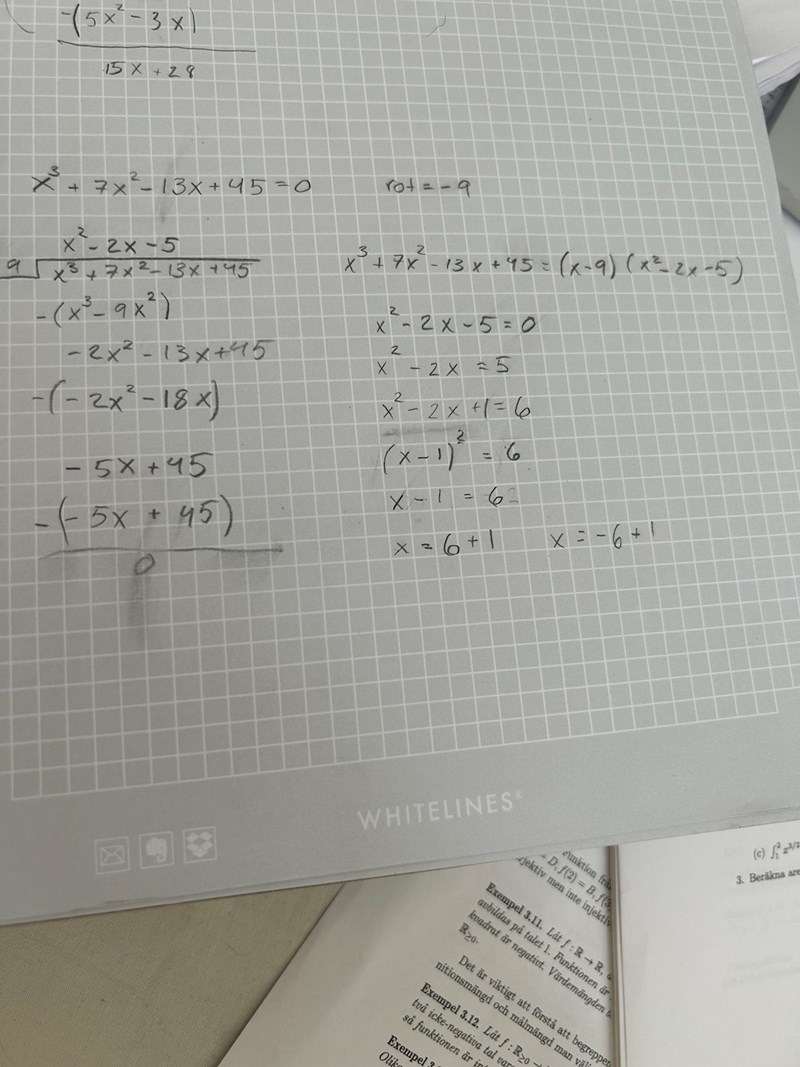 -(5x² - 3x)
15x + 28
x³ + 7x² - 13x + 45 = 0
rot = -9
x² - 2x - 5
9 x³ + 7x² - 13x + 45
-(x³ - 9x²)
-2x² - 13x + 45
-(-2x² - 18x)
-5x + 45
-(-5x + 45)
0
x³ + 7x² - 13x + 45 = (x-9) (x² - 2x - 5)
x² - 2x - 5 = 0
x² - 2x = 5
x² - 2x + 1 = 6
(x - 1)² = 6
x - 1 = 6
x = 6 + 1
x = -6 + 1
WHITELINES®
Funktion
D, f(2) = B, f(3
jektiv men inte injektiv
Exempel 3.11. Låt f : ℝ → ℝ,
avbildas på talet 1. Funktionen är
kvadrat är negativt. Värdemängden
ℝ≥0.
Det är viktigt att förstå att begreppen
nitionsmängd och målmängd man väl
Exempel 3.12. Låt f : ℝ≥0 →
två icke-negativa tal
så funktionen är
Exempel 3.
Olik
(c) ∫₁² x^3/2
3. Beräkna are